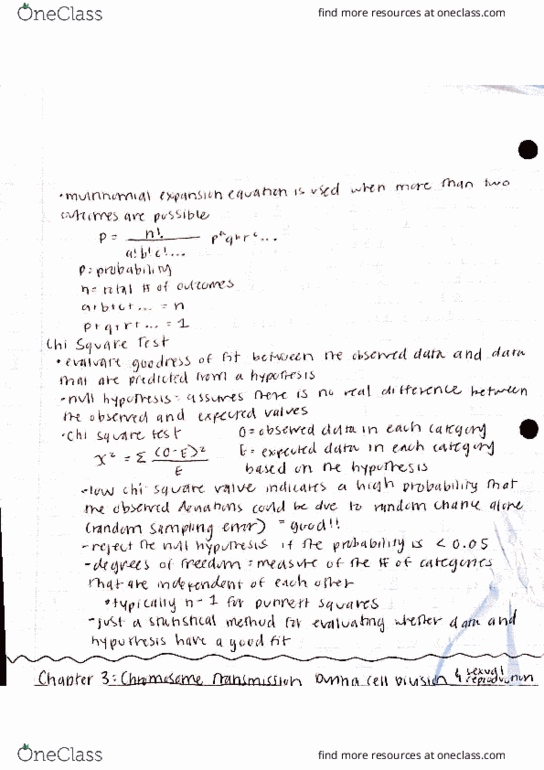 OneClass
find more resources at oneclass.com
• multinomial expansion equation is used when more than two
outcomes are possible
P = n! / a!b!c!... pᵃqᵇrᶜ...
P = probability
n = total # of outcomes
a+b+c+... = n
p+q+r+... = 1
Chi Square Test
• evaluate goodness of fit between the observed data and data
that are predicted from a hypothesis
• null hypothesis = assumes there is no real difference between
the observed and expected values
• chi square test O = observed data in each category
X² = Σ (O-E)² / E E = expected data in each category
based on the hypothesis
- low chi square value indicates a high probability that
the observed deviations could be due to random chance alone
(random sampling error) = good!!
- reject the null hypothesis if the probability is < 0.05
- degrees of freedom = measure of the # of categories
that are independent of each other
• typically n-1 for punnett squares
- just a statistical method for evaluating whether data and
hypothesis have a good fit
Chapter 3: Chromosome Transmission During Cell Division & sexual reproduction
OneClass
find more resources at oneclass.com